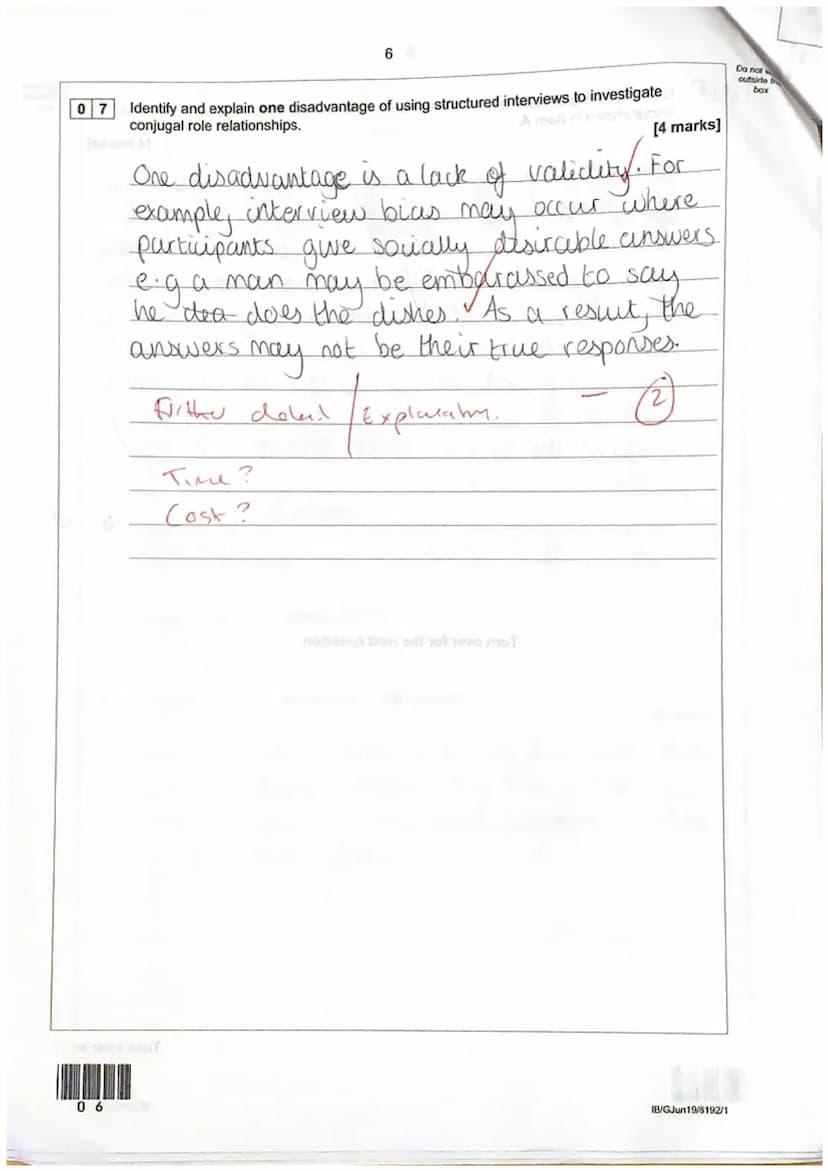 6
Do not
outside
box
0 7 Identify and explain one disadvantage of using structured interviews to investigate
conjugal role relationships.
[4 marks]
One disadvantage is a lack of validity. For
example, interview bias may occur where
participants give socially desirable answers
e.g a man may be embarassed to say
he does the dishes. As a result, the
answers may not be their true responses.
detail / Explanation. - 2
Time?
Cost?
Turn over for the next question
0 6
IB/GJun19/8192/1